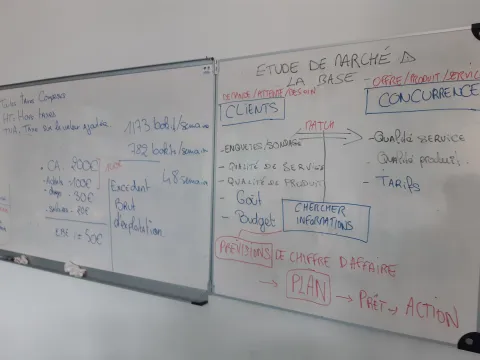 Toutes Taxes Comprises
HT: Hors taxes
TVA: Taxe sur la valeur ajoutée
1173 bob's/semaine
782 bob's/semaine
48 semaine
CA: 200€
- Achats = 100€
= 30€
- salaires: 20€
EBE := 50€
Excedent
Brut
d'exploitation
ETUDE DE MARCHÉ
LA BASE
DEMANDE/ATTENTE/BESOIN
CLIENTS
- OFFRE/PRODUIT/SERVICE
CONCURRENCE
MATCH
- ENQUETES/SONDAGE
- QUALITÉ DE SERVICE
- QUALITÉ DE PRODUIT
- Goût
- Budget
- Qualité SERVICE
- Qualité produit
- TARifs
CHERCHER
INFORMATIONS
PREVISIONS DE CHIFFRE D'AFFAIRE
→ PLAN → PRÊT → ACTION